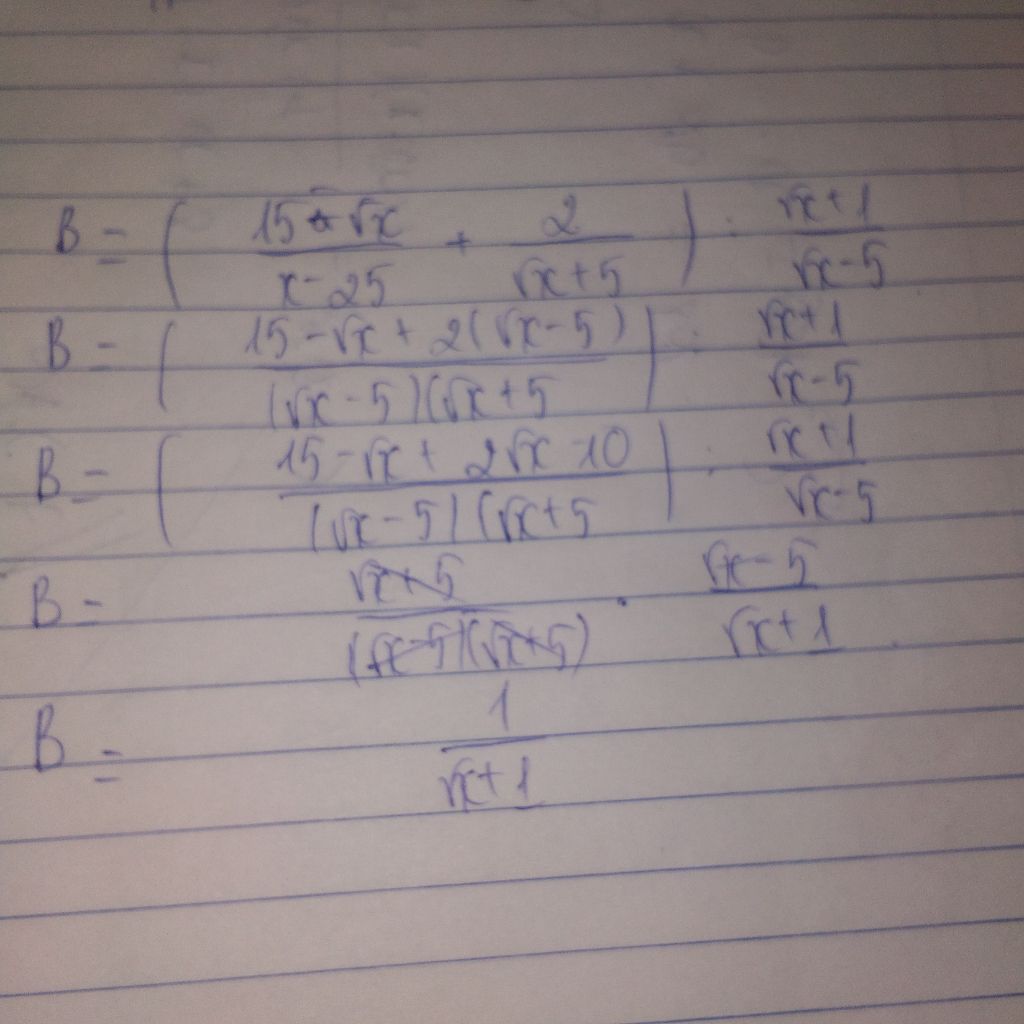 B = ( (15 - √x)/(x - 25) + 2/(√x + 5) ) : (√x + 1)/(√x - 5)
B = ( (15 - √x + 2(√x - 5))/((√x - 5)(√x + 5) ) : (√x + 1)/(√x - 5)
B = ( (15 - √x + 2√x - 10)/((√x - 5)(√x + 5) ) : (√x + 1)/(√x - 5)
B = (√x + 5)/((√x - 5)(√x + 5)) . (√x - 5)/(√x + 1)
B = 1/(√x + 1)